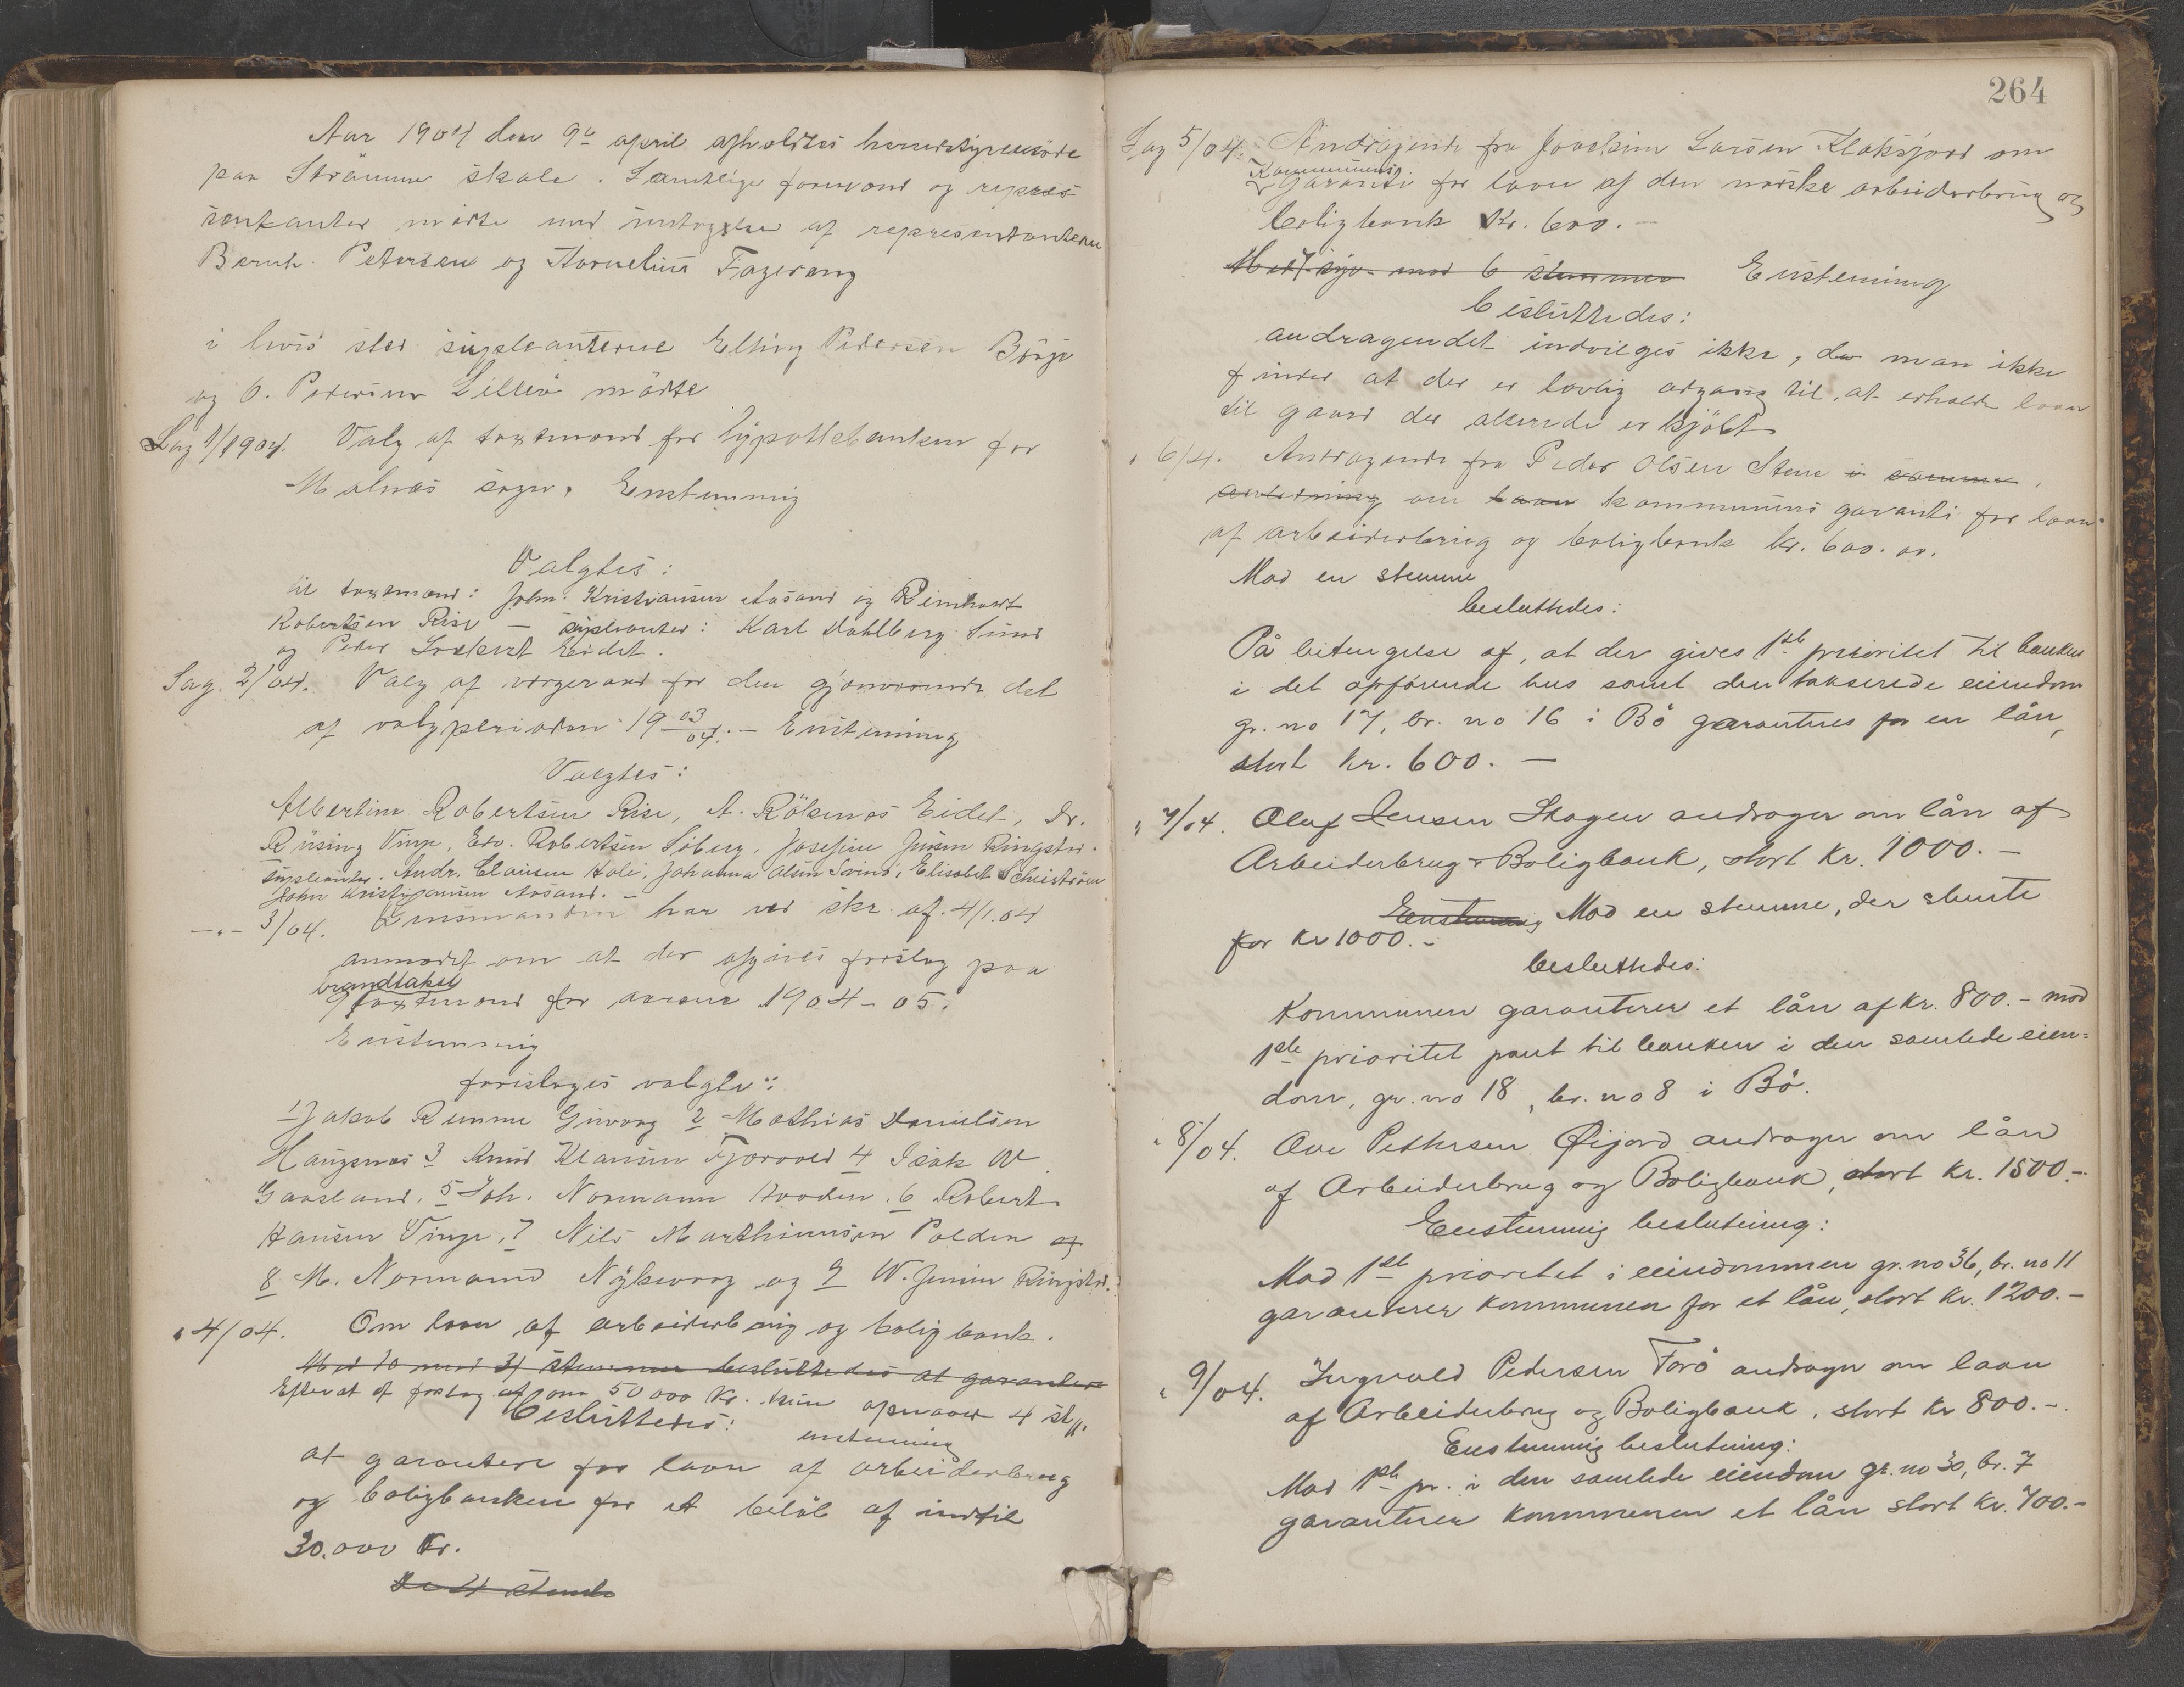 Aar 1904 den 9de april afholdtes herredstyremöde
paa Strömme skole. Samtlige formænd og repræ-
sentanter mödte med undtagelse af representanterne
Bernh. Petersen og Kornelius Fagereng
i hvis sted supleanterne Elling Pedersen Börge
og O. Pedersen Lillevö mödte
Sag 1/1904. Valg af taxtmænd for hypothebanken for
Malnes sogn. Enstemmig
Valgtes:
til taxtmænd: John. Kristiansen Aasand og Reinhart
Robertsen Rise — supleanter: Karl Dahlberg Sund
og Peder Lockert Eidet.
Sag. 2/04. Valg af vergeraad for den gjenværende del
af valgperioden 19 03/04. — Enstemmig
Valgtes:
Albertine Robertsen Rise, A. Röksnes Eidet, Dr.
Rüsing Vinje, Edv. Robertsen Söberg, Josefine Jensen Ringstad.
supleanter. Andr. Clausen Hole, Johanna Olsen Svind, Elisabet Scheiström
John Kristiansen Aasand. —
-"- 3/04. Lensmanden har ved skr. af. 4/1.04
anmodet om at der afgives forslag paa
brandtakst
9 taxtmænd for aarene 1904-05.
Enstemmig
foresloges valgte:
1 Jakob Rumme Guvaag 2 Mathias Danielsen
Haugsnes 3 Knud Klausen Fjærvold 4 Isak W
Gaasland. 5 Joh. Normann Hovden. 6 Robert
Hansen Vinje, 7 Nils Marthinussen Polden og
8 M. Normann Nykvaag og 9 W. Jensen Ringstad.
" 4/04. Om laan af arbeiderbrug og boligbank.
Med 10 mod 3 stemmer besluttedes at garantere
Efter at et forslag om 50000 Kr. kun opnaaede 4 st
besluttedes:
enstemmig
at garantere for laan af arbeiderbrug
og boligbanken for et belöb af indtil
30.000 Kr.
De 4 stemte
264
Sag 5/04. Andragende fra Joachim Larsen Klaksjord om
Kommunens
garanti for laan af den norske arbeiderbrug og
boligbank Kr. 600. —
Med 7 mod 6 stemmer Enstemmig
besluttedes:
andragendet indvilges ikke, da man ikke
finder at der er lovlig adgang til, at erholde laan
til gaard der allerede er kjöbt
" 6/4. Andragende fra Peder Olsen Stene i samme
anledning om laan kommunens garanti for laan
af arbeiderbrug og boligbank kr. 600.00.
Mod en stemme
besluttedes:
På betingelse af, at der gives 1ste prioritet til banken
i det opförende hus samt den takserede eiendom
gr. no 17, br. no 16 i Bö garanteres for en lån,
stort kr. 600. —
" 7/04. Olaf Jensen Skagen andrager om lån af
Arbeiderbrug & Boligbank, stort Kr. 1000. —
Enstemmig Mod en stemme, der stemte
for Kr 1000. -
besluttedes:
Kommunen garanterer et lån af kr. 800. - mod
1ste prioritet pant til banken i den samlede eien-
dom, gr. no 18, br. no 8 i Bö.
" 8/04. Ove Pettersen Øijord andrager om lån
af Arbeiderbrug og Boligbank, stort Kr. 1500. -
Enstemmig beslutning:
Mod 1ste prioritet i eiendommen gr. no 36, br. no 11
garanterer kommunen for et lån, stort kr. 1200. -
" 9/04. Ingvald Pedersen Förö andrager om laan
af Arbeiderbrug og Boligbank, stort Kr 800. -.
Enstemmig beslutning:
Mod 1ste pr. i den samlede eiendom gr. no 30, br. 7
garanterer kommunen et lån stort kr. 700. -